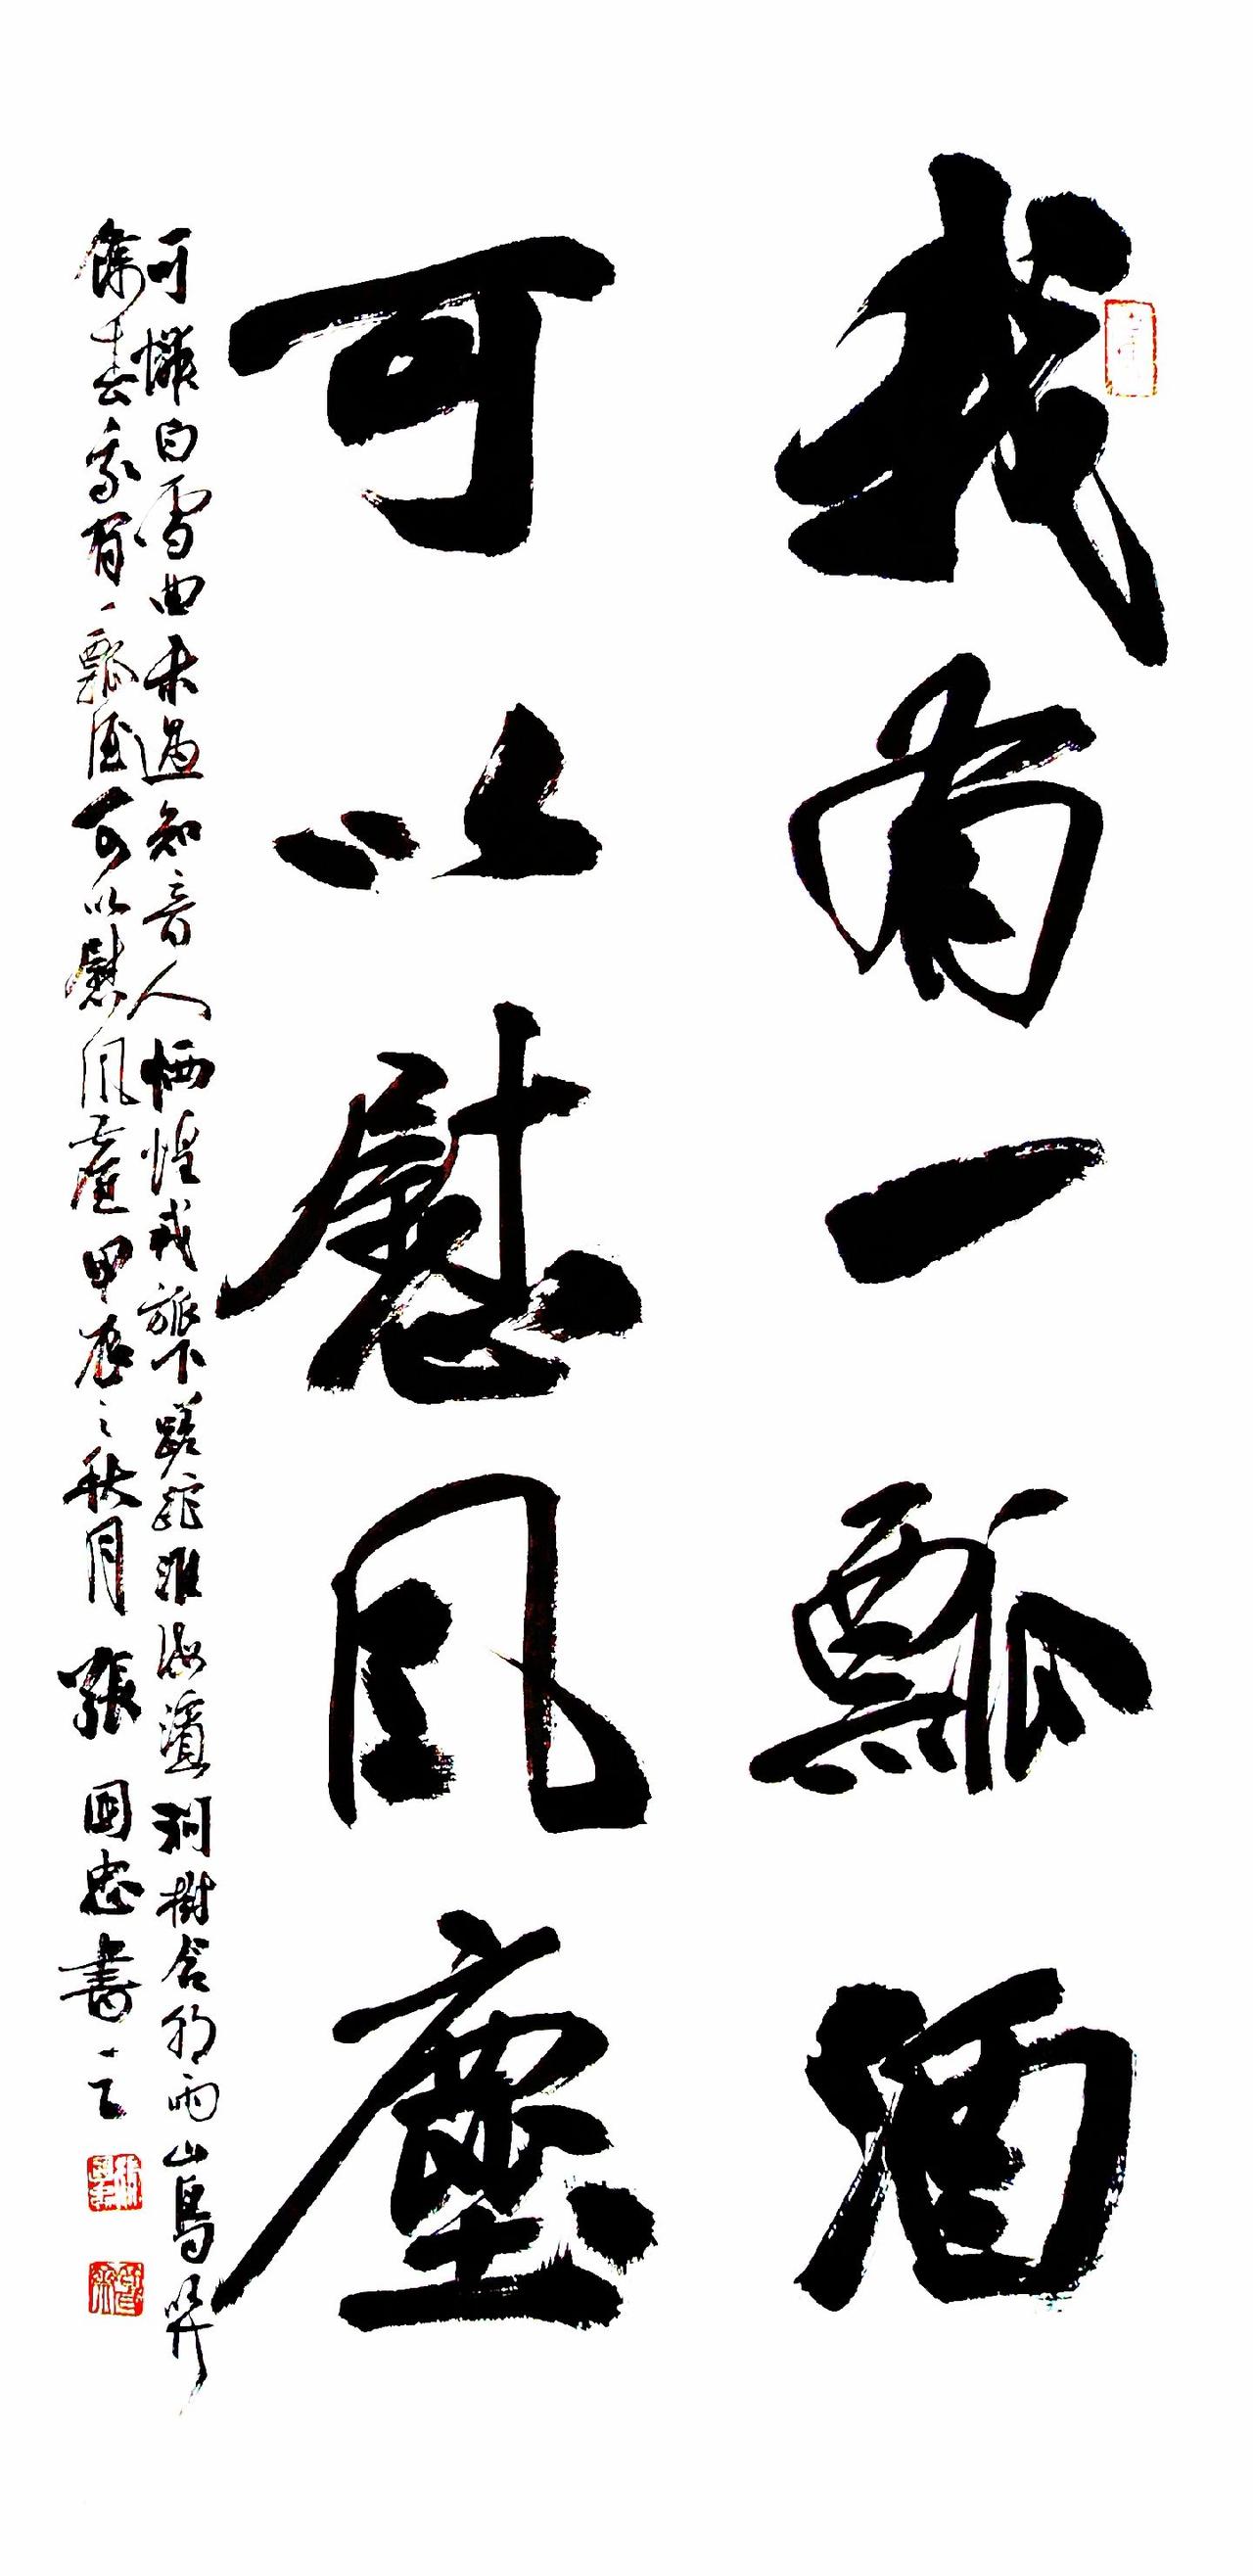 我有一瓢酒
可以慰風塵
可憐白雪曲未遇知音人恓惶戎旅下蹉跎淮海濱澗樹含朝雨山鳥哢
餘春我有一瓢酒可以慰風塵甲辰之秋月張國忠書之